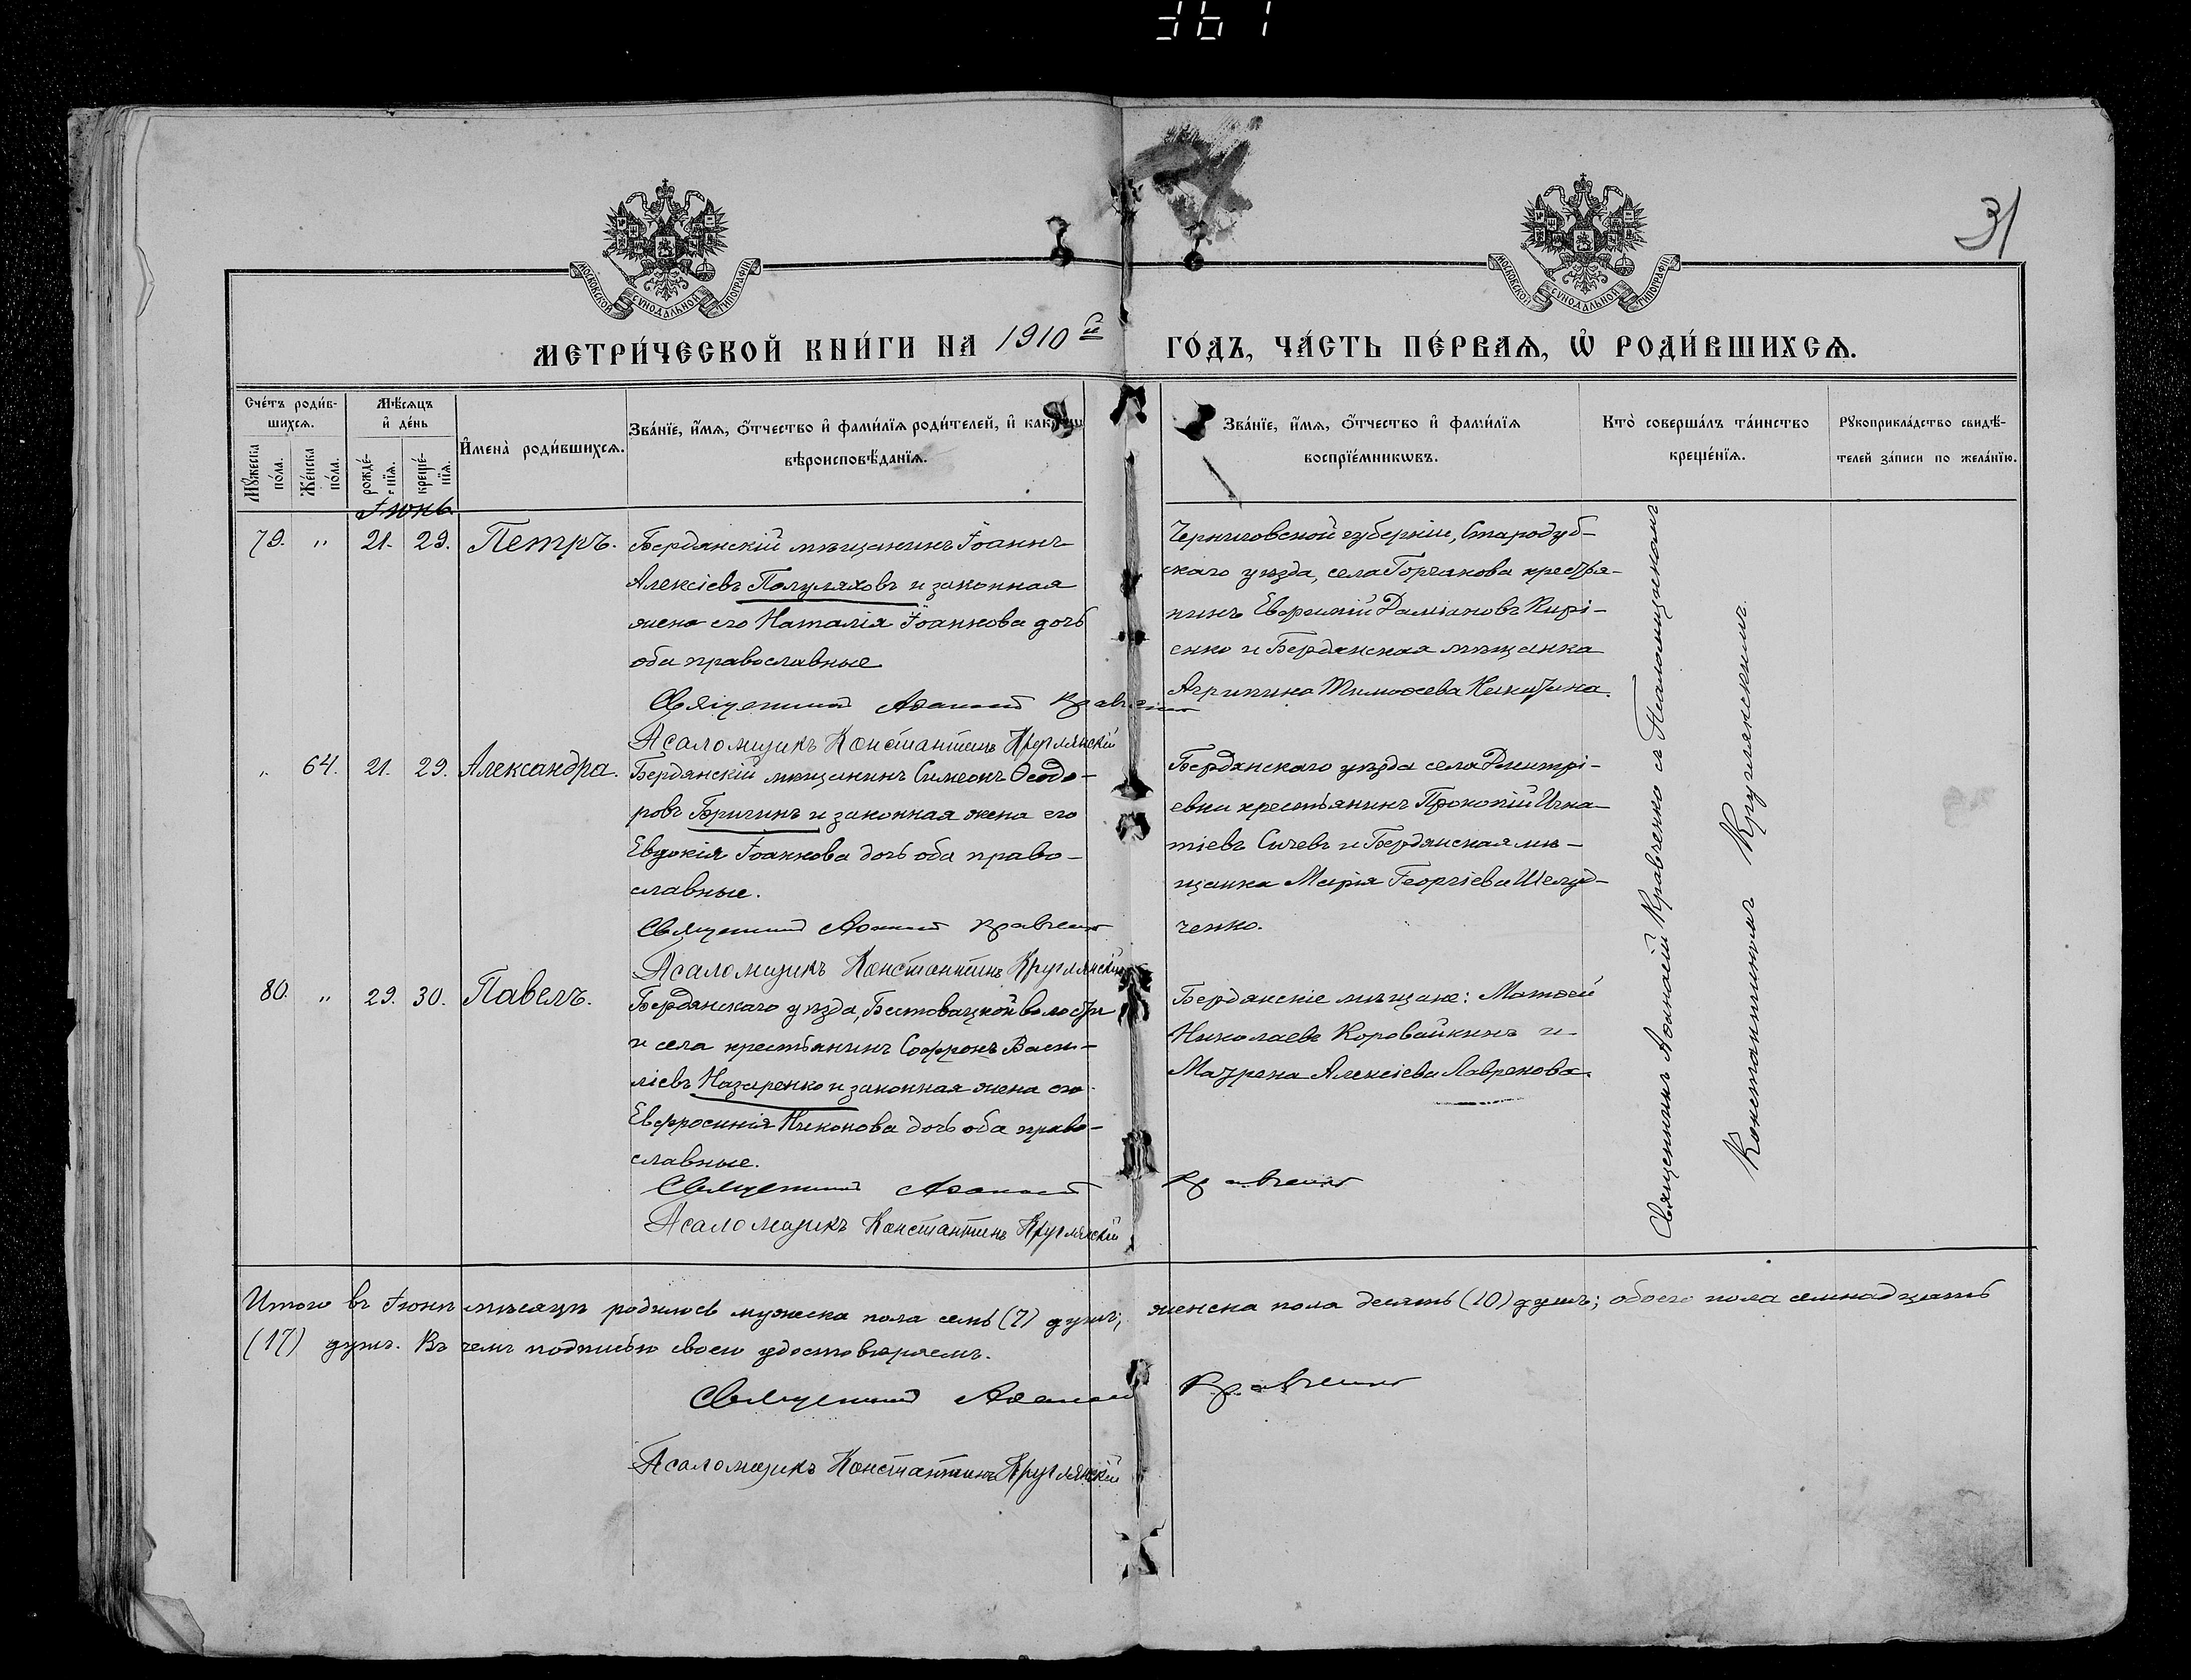 361
31
МОСКОВСКОЙ СѴНОДАЛЬНОЙ ТИПОГРАФІИ
МОСКОВСКОЙ СѴНОДАЛЬНОЙ ТИПОГРАФІИ
МЕТРИ́ЧЕСКОЙ КНИ́ГИ НА 1910й ГО́ДЪ, ЧА́СТЬ ПЕ́РВАѦ, Ѡ РОДИ́ВШИХСѦ.
Сче́тъ роди́вшихсѧ.
Мꙋ́жеска по́ла.
Же́нска по́ла.
Мѣ́сѧцъ и҆ де́нь
рожде́нїѧ.
креще́нїѧ.
И҆мена̀ роди́вшихсѧ.
Зва́нїе, и҆́мѧ, ѻ҆́тчество и҆ фами́лїѧ роди́телей, и҆
вѣроисповѣ́данїѧ.
Зва́нїе, и҆́мѧ, ѻ҆́тчество и҆ фами́лїѧ
воспрїе́мникѡвъ.
Кто̀ соверша́лъ та́инство
креще́нїѧ.
Рꙋкоприкла́дство свидѣ́-
телей за́писи по жела́нїю.
Іюнь.
79. " 21. 29. Петръ.
Бердянскій мѣщанинъ Іоаннъ
Алексіевъ Полуляховъ и законная
жена его Наталія Іоаннова дочь
оба православные
Священникъ Аѳанасій Кравченко
Псаломщикъ Константинъ Круглянскій
Черниговской губерніи, Стародуб-
скаго уѣзда, села Горчакова крестья-
нинъ Евфимій Даміановъ Кирі-
енко и Бердянская мѣщанка
Агрипина Тимоѳеева
" 64. 21. 29. Александра.
Бердянскій мѣщанинъ Симеонъ Ѳеодо-
ровъ Бричинъ и законная жена его
Евдокія Іоаннова дочь оба право-
славные.
Священникъ Аѳанасій Кравченко
Псаломщикъ Константинъ Круглянскій
Бердянскаго уѣзда села Дмитрі-
евки крестьянинъ Прокопій Игна-
тіевъ Сычевъ и Бердянская мѣ-
щанка Марія Георгіева Шелуд-
ченко.
80. " 29. 30. Павелъ.
Бердянскаго уѣзда, волости
и села крестьянинъ Софронъ Васи-
ліевъ Назаренко и законная жена его
Евфросинія Никонова дочь оба право-
славные.
Священникъ Аѳанасій Кравченко
Псаломщикъ Константинъ Круглянскій
Бердянскіе мѣщане: Матѳей
Николаевъ Коровайкинъ и
Мавра Алексіева Лавренова.
Священникъ Аѳанасій Кравченко съ Псаломщикомъ
Константиномъ Круглянскимъ
Итого въ Іюнѣ мѣсяцѣ родилось мужеска пола семь (7) душъ; женска пола десять (10) душъ; обоего пола семнадцать
(17) душъ. Въ чемъ подписью своею удостовѣряемъ.
Священникъ Аѳанасій Кравченко
Псаломщикъ Константинъ Круглянскій